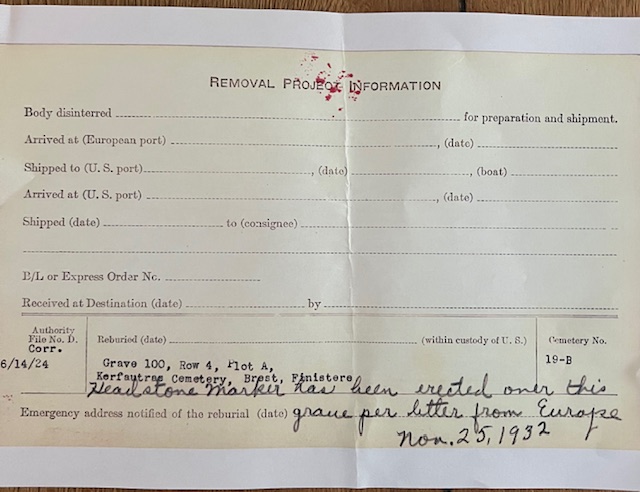 REMOVAL PROJECT INFORMATION
Body disinterred for preparation and shipment.
Arrived at (European port) , (date)
Shipped to (U. S. port) , (date) , (boat)
Arrived at (U. S. port) , (date)
Shipped (date) to (consignee)
B/L or Express Order No.
Received at Destination (date) by
Authority
File No. D.
Corr.
6/14/24
Reburied (date) (within custody of U. S.)
Grave 100, Row 4, Plot A,
Kerfautras Cemetery, Brest, Finistere
Cemetery No.
19-B
Headstone Marker has been erected over this
Emergency address notified of the reburial (date) grave per letter from Europe
Nov. 25, 1932